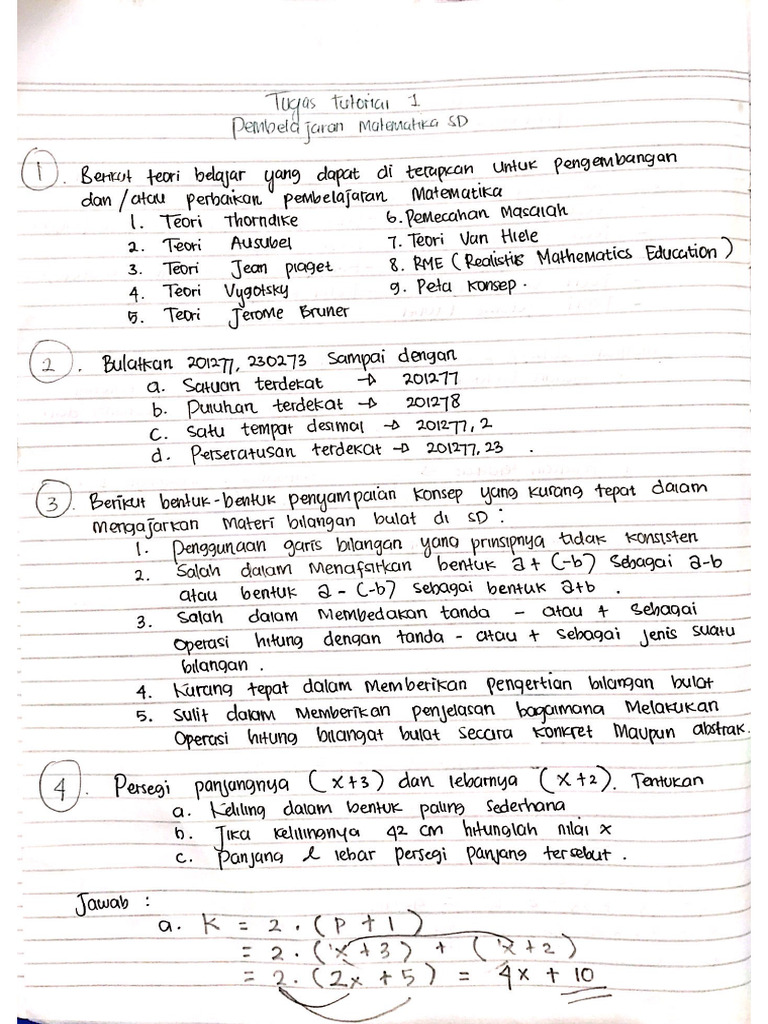 Tugas tutorial 1
Pembelajaran Matematika SD
1. Berikut teori belajar yang dapat di terapkan untuk pengembangan
dan /atau perbaikan pembelajaran Matematika
1. Teori Thorndike
2. Teori Ausubel
3. Teori Jean piaget
4. Teori Vygotsky
5. Teori Jerome Bruner
6. Pemecahan Masalah
7. Teori Van Hiele
8. RME (Realistik Mathematics Education)
9. Peta Konsep.
2. Bulatkan 201277, 230273 Sampai dengan
a. Satuan terdekat → 201277
b. Puluhan terdekat → 201278
c. Satu tempat desimal → 201277,2
d. Perseratusan terdekat → 201277,23 .
3. Berikut bentuk-bentuk penyampaian konsep yang kurang tepat dalam
mengajarkan Materi bilangan bulat di SD :
1. Penggunaan garis bilangan yang prinsipnya tidak konsisten
2. Salah dalam Menafsirkan bentuk a + (-b) sebagai a-b
atau bentuk a - (-b) sebagai bentuk a+b .
3. Salah dalam Membedakan tanda - atau + Sebagai
Operasi hitung dengan tanda - atau + sebagai jenis suatu
bilangan .
4. Kurang tepat dalam memberikan pengertian bilangan bulat
5. Sulit dalam Memberikan penjelasan bagaimana Melakukan
Operasi hitung bilangat bulat secara konkret Maupun abstrak.
4. Persegi panjangnya (x+3) dan lebarnya (x+2). Tentukan
a. Keliling dalam bentuk paling sederhana
b. Jika kelilingnya 42 cm hitunglah nilai x
c. Panjang & lebar persegi panjang tersebut .
Jawab :
a. K = 2 . (P + l)
= 2 . (x + 3) + (x + 2)
= 2 . (2x + 5) = 4x + 10